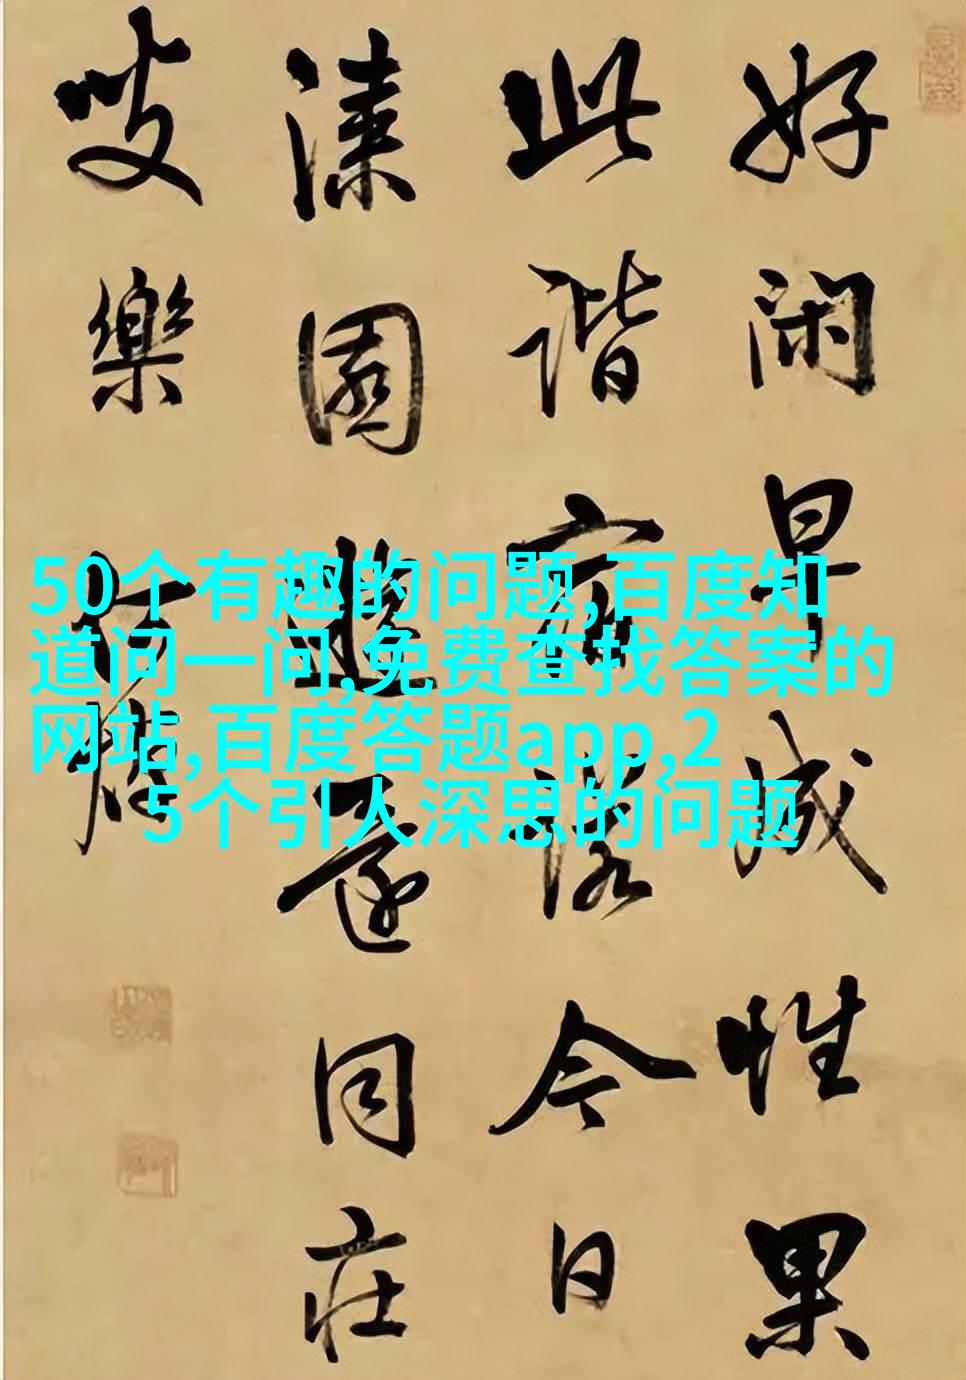 好閑早成性果
此諧宿諾今日
漆園遊還同庄
叟樂
50个有趣的问题,百度知
道问一问,免费查找答案的
网站,百度答题app,2
5个引人深思的问题